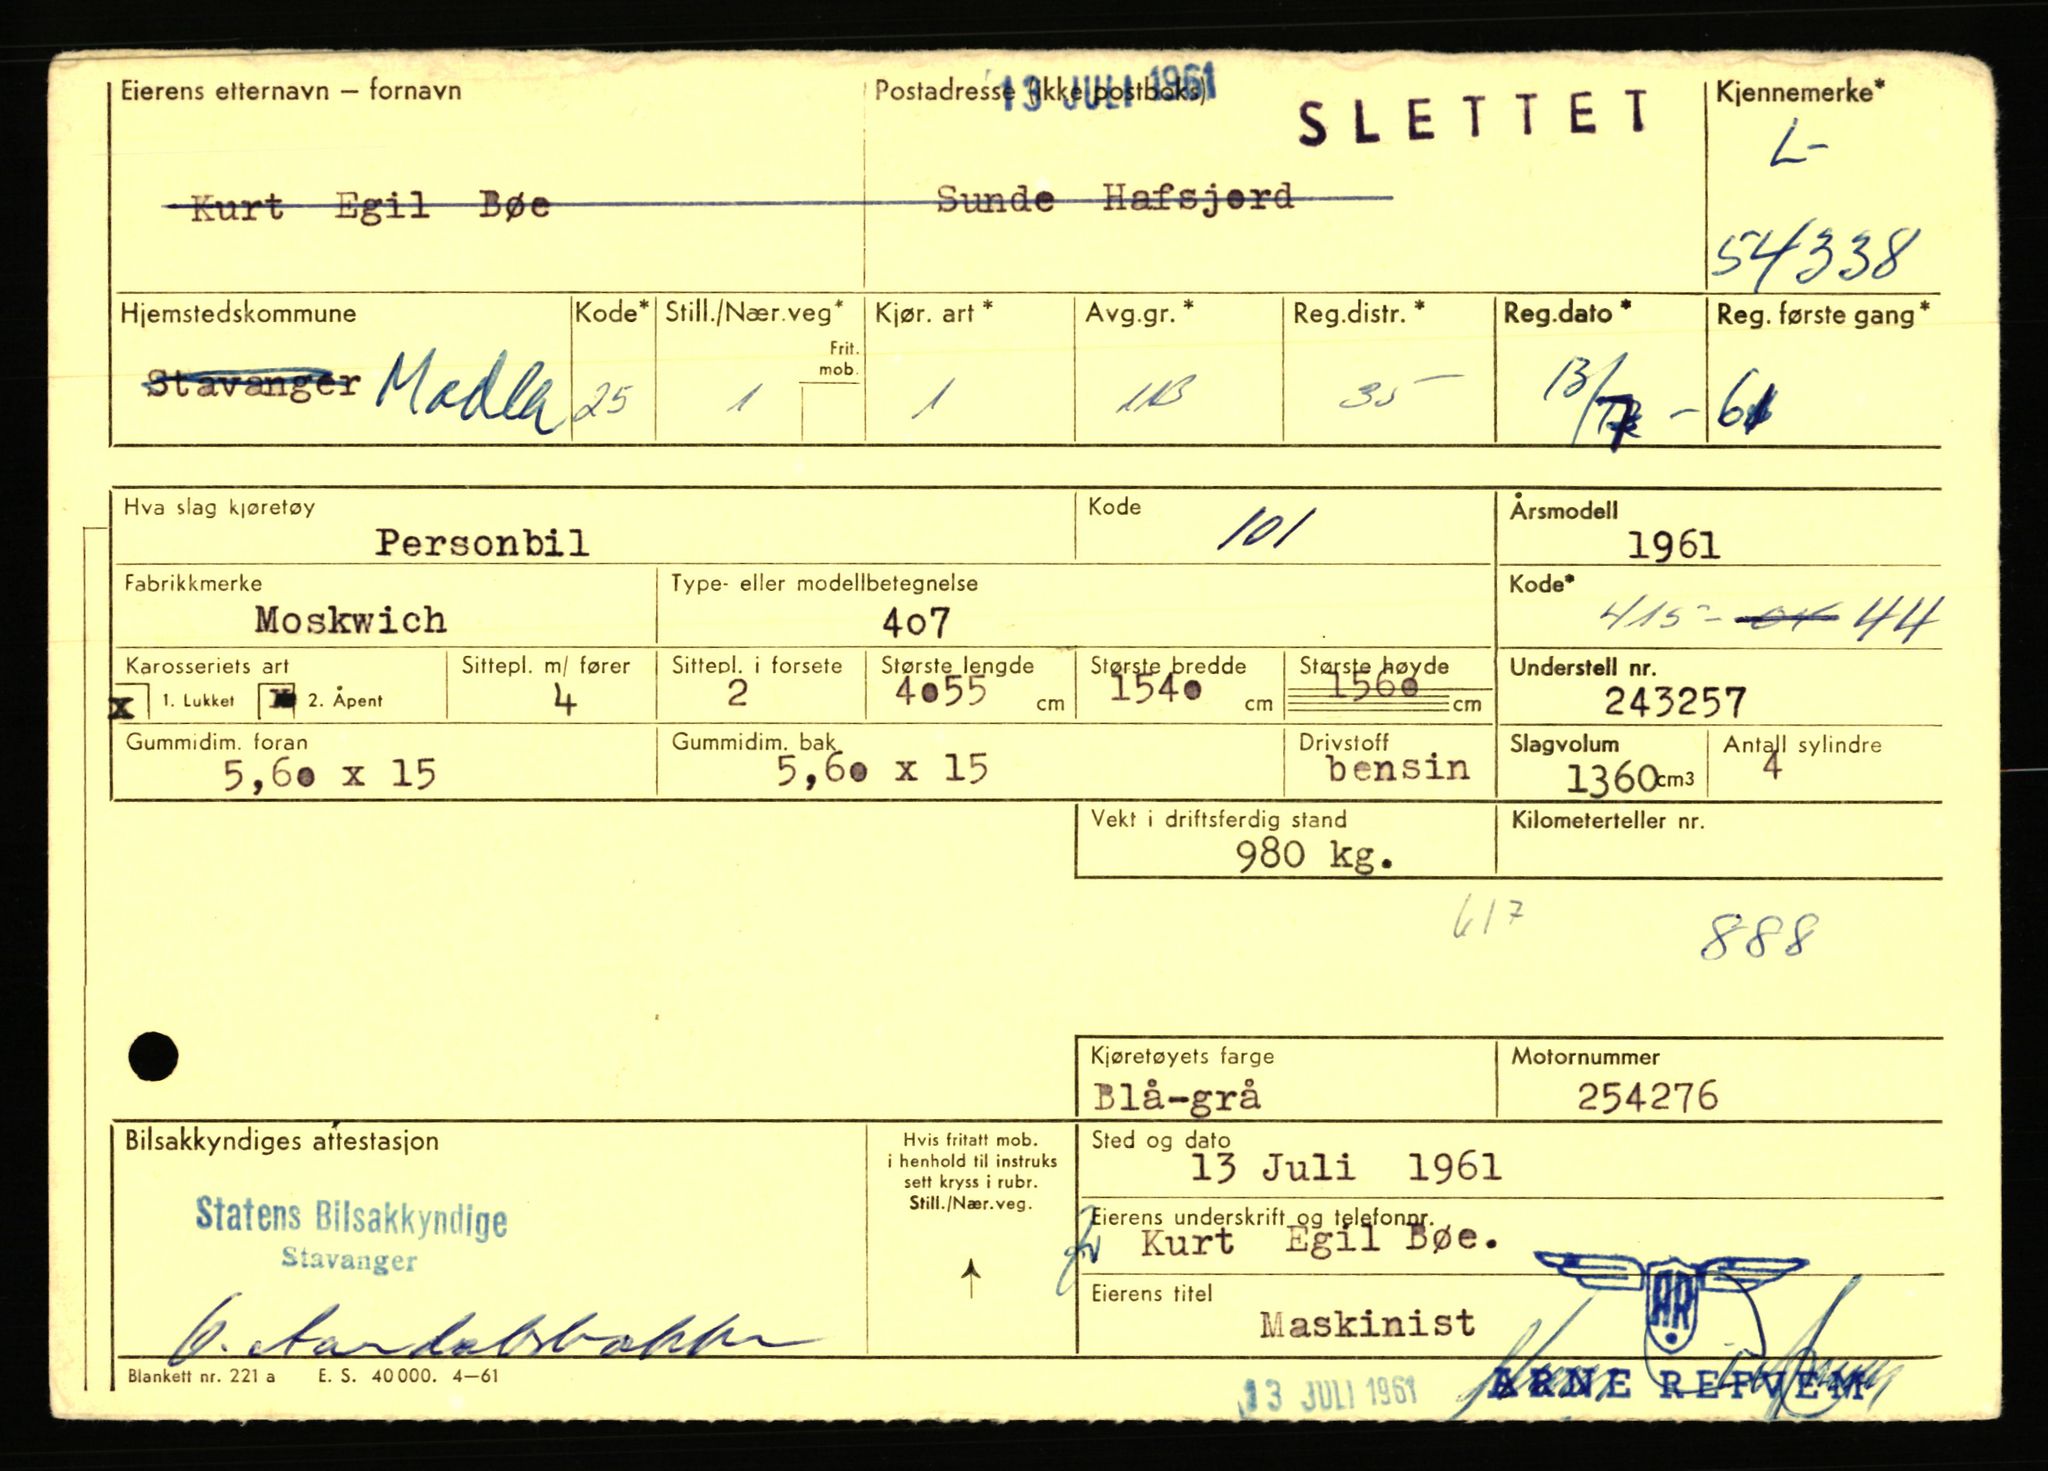 13 JULI 1961
SLETTET
Eierens etternavn – fornavn
Postadresse (ikke postboks)
Kjennemerke*
L-
54338
Kurt Egil Bøe
Sunde Hafsjord
Hjemstedskommune
Kode*
Still./Nær.veg*
Frit. mob.
Kjør. art *
Avg.gr. *
Reg.distr. *
Reg.dato *
Reg. første gang*
Stavanger Madla
25
1
1
11B
35
13/7 - 61
Hva slag kjøretøy
Personbil
Kode
101
Årsmodell
1961
Fabrikkmerke
Moskwich
Type- eller modellbetegnelse
407
Kode*
415- 04 44
Karosseriets art
x 1. Lukket
2. Åpent
Sittepl. m/ fører
4
Sittepl. i forsete
2
Største lengde
4055 cm
Største bredde
1540 cm
Største høyde
1560 cm
Understell nr.
243257
Gummidim. foran
5,60 x 15
Gummidim. bak
5,60 x 15
Drivstoff
bensin
Slagvolum
1360 cm3
Antall sylindre
4
Vekt i driftsferdig stand
980 kg.
Kilometerteller nr.
617
888
Kjøretøyets farge
Blå-grå
Motornummer
254276
Bilsakkyndiges attestasjon
Statens Bilsakkyndige
Stavanger
Hvis fritatt mob.
i henhold til instruks
sett kryss i rubr.
Still./Nær.veg.
Sted og dato
13 Juli 1961
Eierens underskrift og telefonnr.
Kurt Egil Bøe.
Eierens titel
Maskinist
AR
ARNE REFVEM
13 JULI 1961
Blankett nr. 221 a E. S. 40 000. 4–61